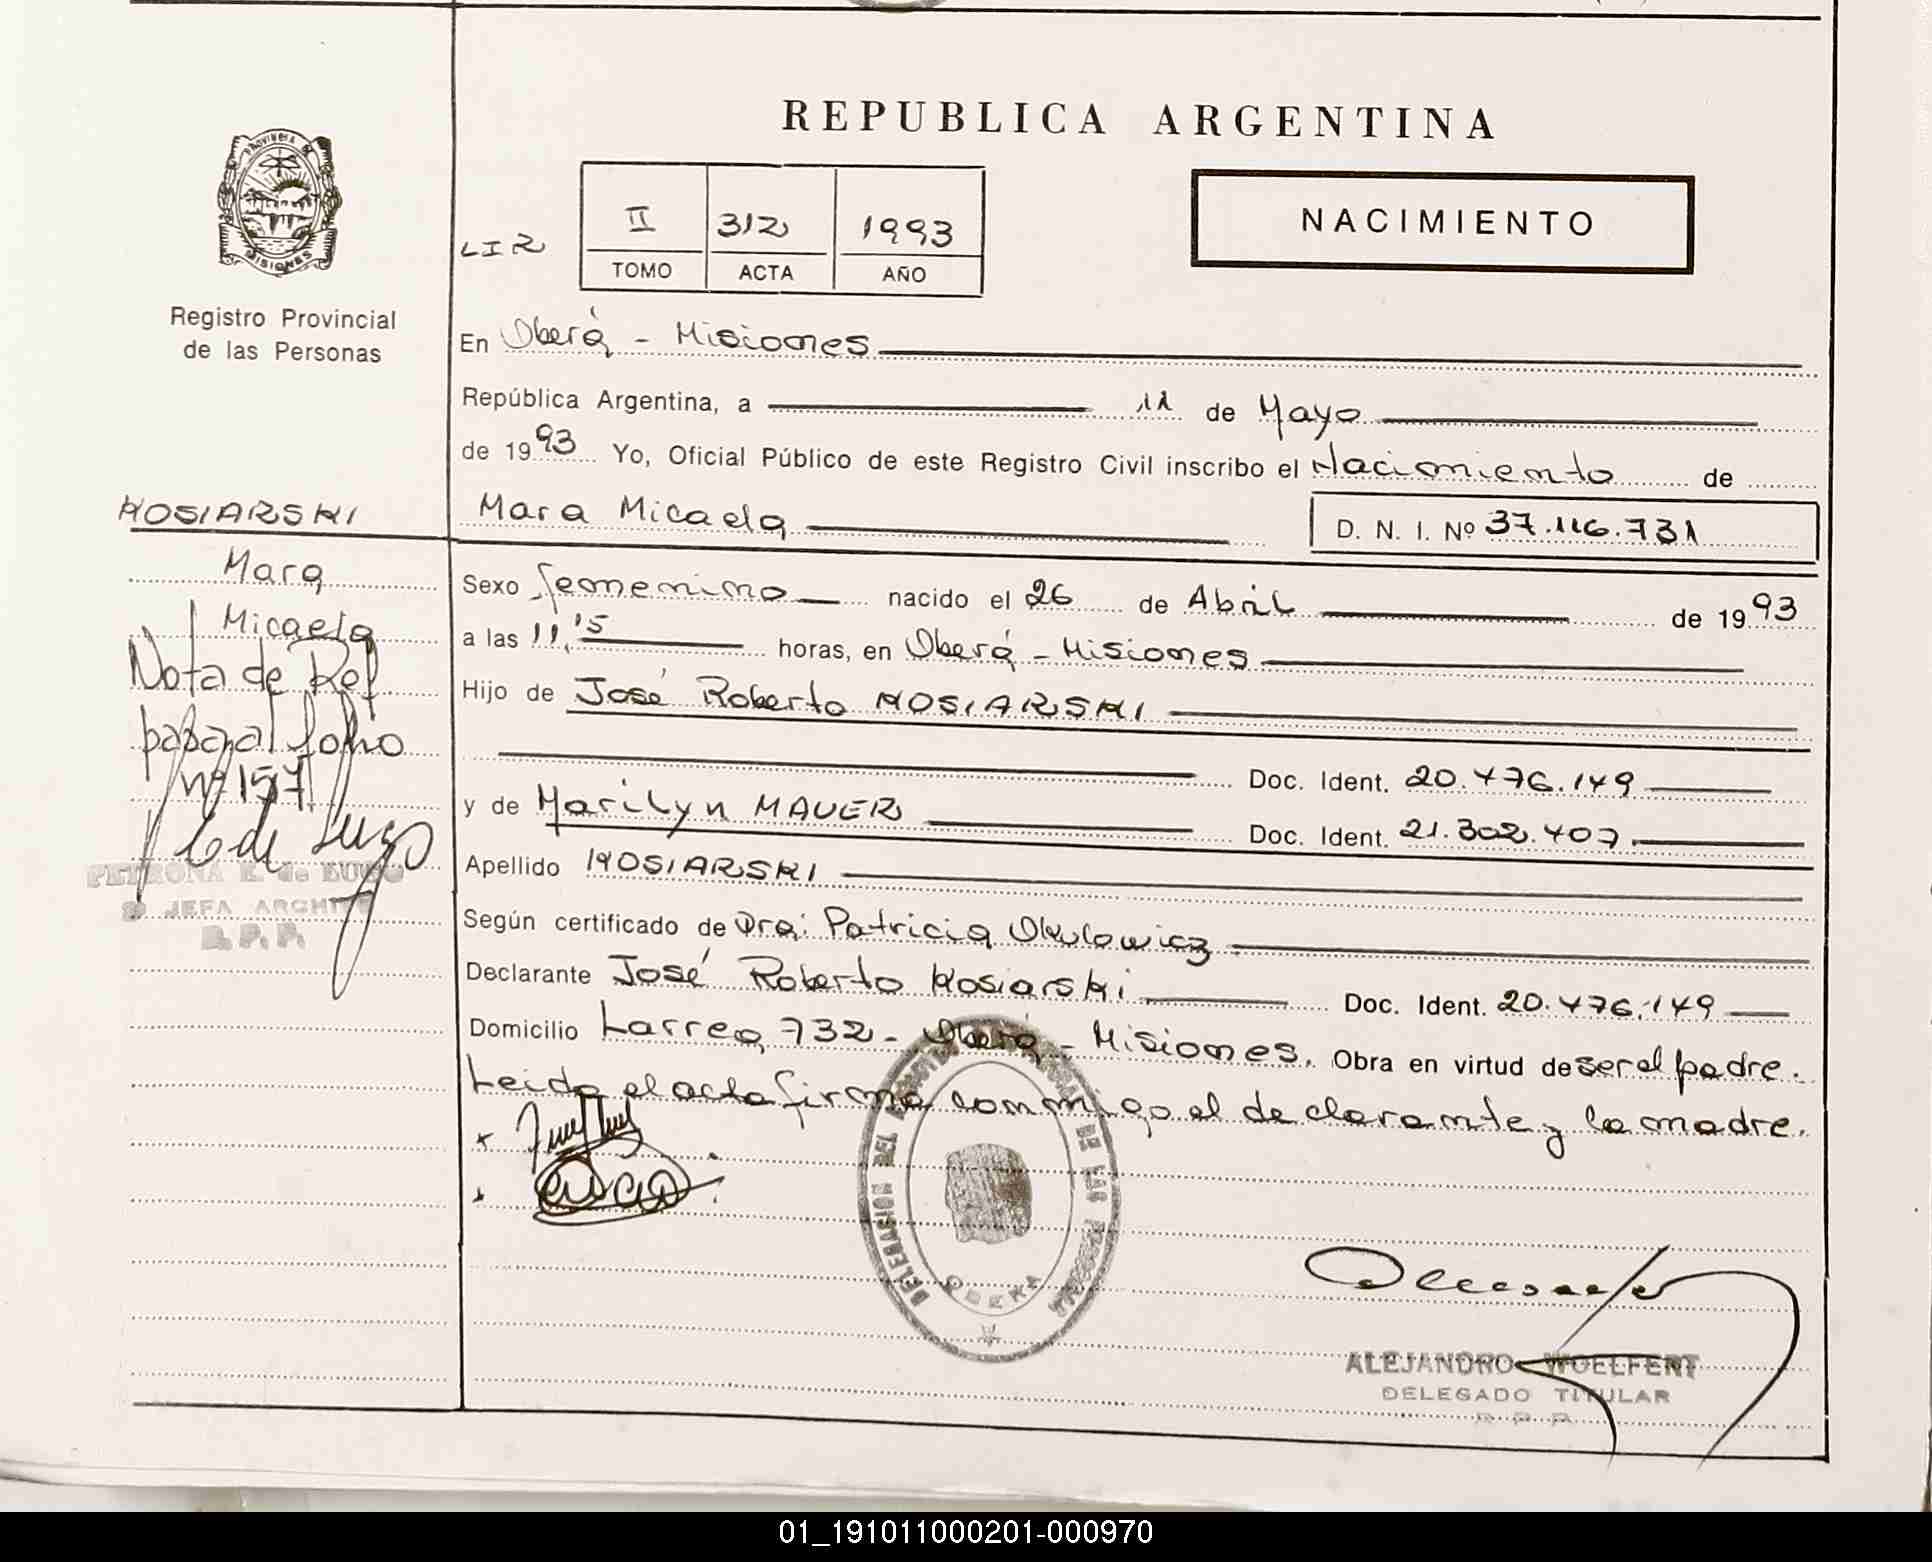 REPUBLICA ARGENTINA
PROVINCIA DE
MISIONES
Registro Provincial
de las Personas
II 312 1993
TOMO ACTA AÑO
NACIMIENTO
En Oberá - Misiones
República Argentina, a 11 de Mayo
de 1993 Yo, Oficial Público de este Registro Civil inscribo el Nacimiento de
Mara Micaela D. N. I. Nº 37.116.731
Sexo femenino nacido el 26 de Abril de 1993
a las 11,15 horas, en Oberá - Misiones
Hijo de José Roberto KOSIARSKI
Doc. Ident. 20.476.149
y de Marilyn MAUER Doc. Ident. 21.302.407
Apellido KOSIARSKI
Según certificado de Dra: Patricia Okulowicz
Declarante José Roberto Kosiarski Doc. Ident. 20.476.149
Domicilio Larrea 732 - Oberá - Misiones. Obra en virtud de ser el padre.
Leida el acta firma conmigo el declarante y la madre.
KOSIARSKI
Mara
Micaela
Nota de Ref
pasa al folio
nº 157
E de Lugo
PETRONA E. de LUGO
JEFA ARCHIVO
R. P. P.
DELEGACION DEL REGISTRO PROVINCIAL DE LAS PERSONAS
OBERA
ALEJANDRO WOELFERT
DELEGADO TITULAR
R. P. P.
01_191011000201-000970